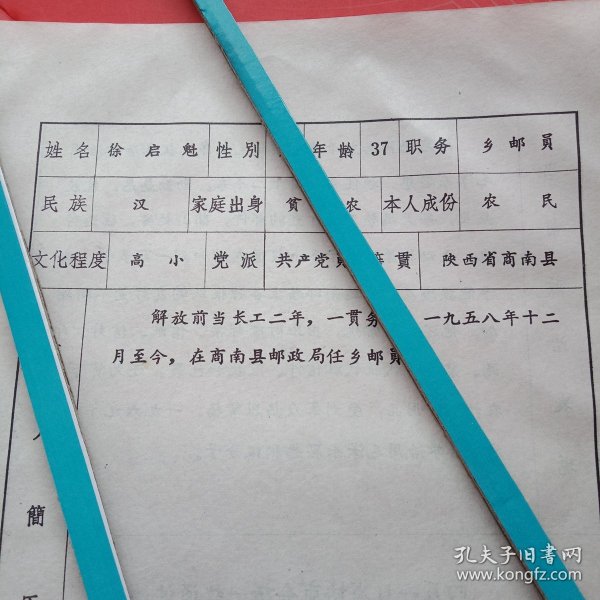 姓名 徐启魁 性別 年龄 37 职务 乡邮員
民族 汉 家庭出身 贫农 本人成份 农民
文化程度 高小 党派 共产党 貫 陕西省商南县
解放前当长工二年，一貫务 一九五八年十二
月至今，在商南县邮政局任乡邮員
簡
孔夫子旧书网
www.kongfz.com